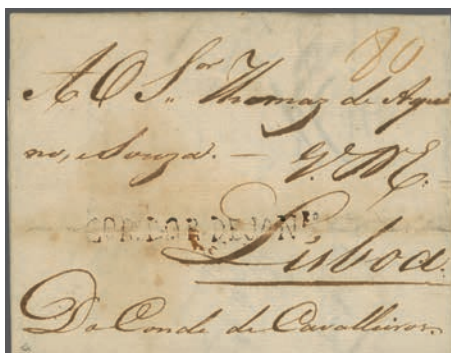 80
A O S.or Thomaz de Aqui
no, e Souza. —
COR. DO R. DE JAN.RO
Lisboa.
Do Conde de Cavalleiros